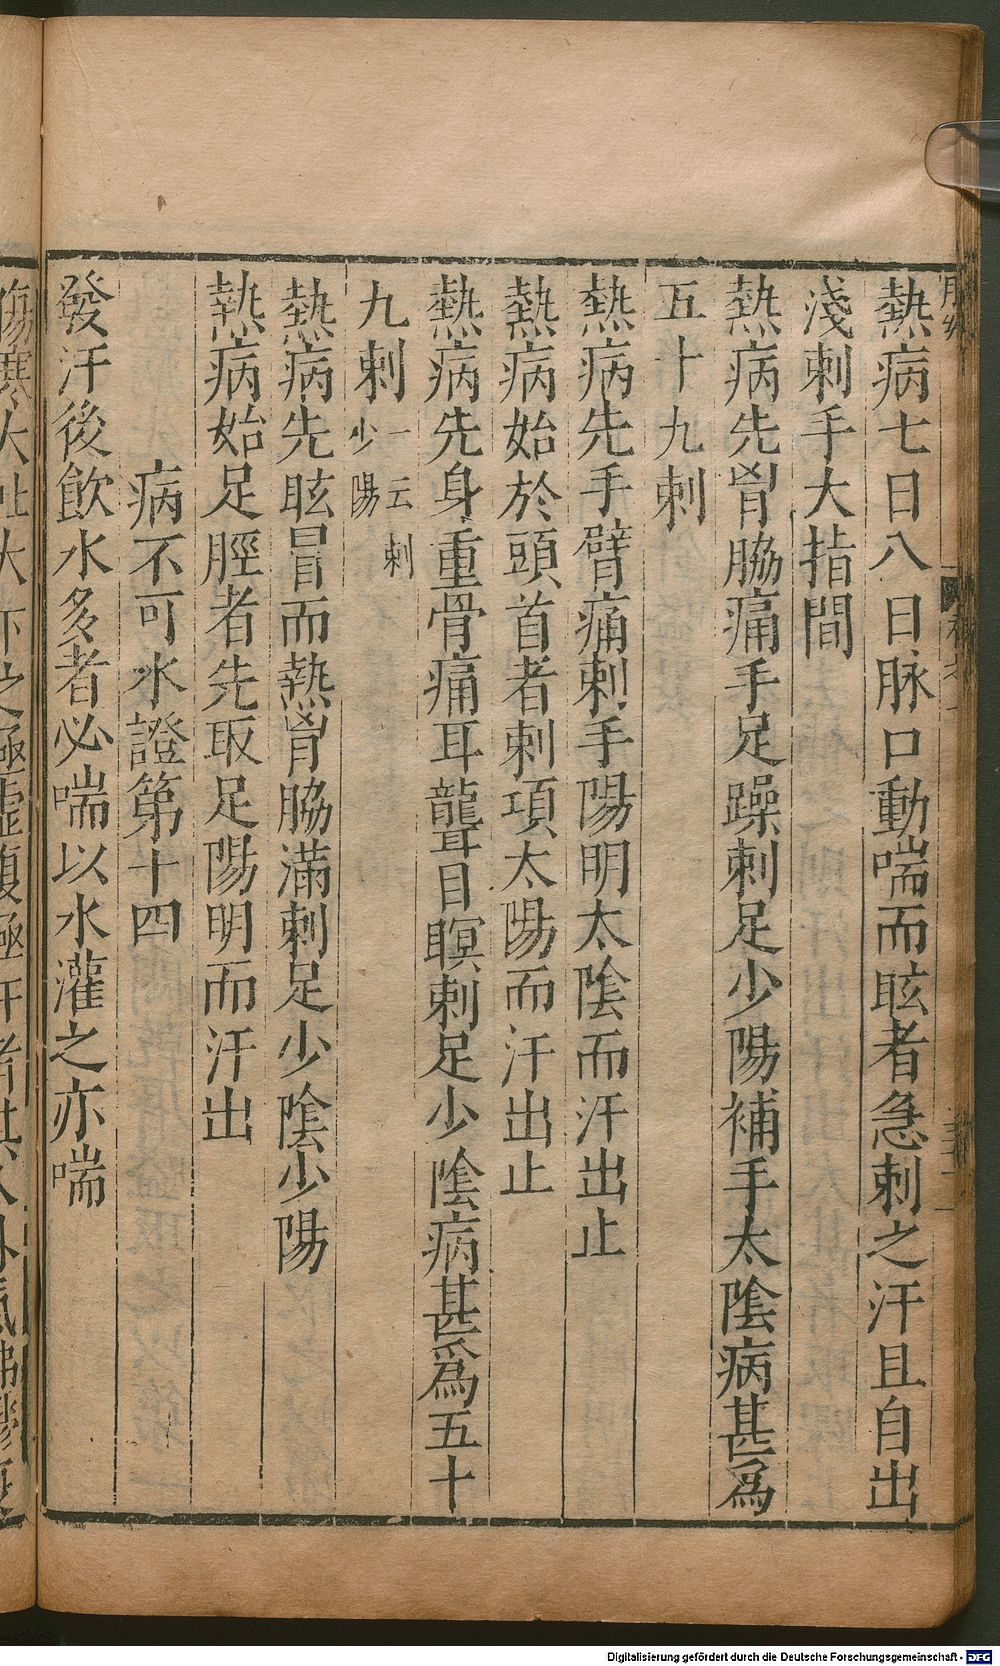 熱病七日八日脉口動喘而眩者急刺之汗且自出
淺刺手大指間
熱病先胷脇痛手足躁刺足少陽補手太陰病甚爲
五十九刺
熱病先手臂痛刺手陽明太陰而汗出止
熱病始於頭首者刺項太陽而汗出止
熱病先身重骨痛耳聾目瞑刺足少陰病甚爲五十
九刺一云刺少陽
熱病先眩冒而熱胷脇滿刺足少陰少陽
熱病始足脛者先取足陽明而汗出
病不可水證第十四
發汗後飮水多者必喘以水灌之亦喘
傷寒大吐大下之極虛復極汗者其人外氣怫鬱復
Digitalisierung gefördert durch die Deutsche Forschungsgemeinschaft - DFG